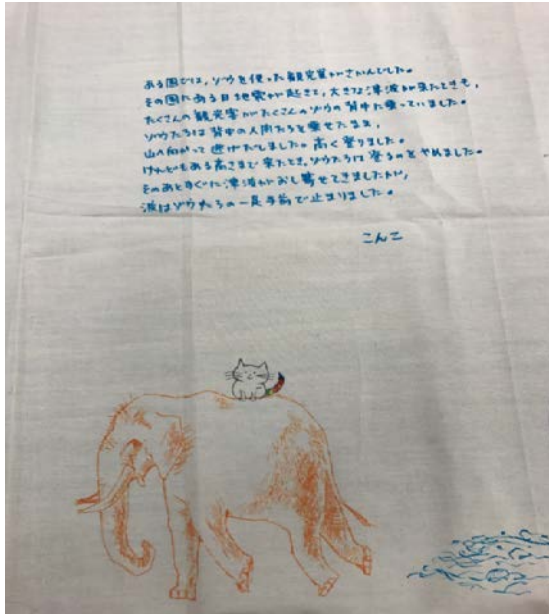 ある国では、ゾウを使った観光業がさかんでした。
その国にある日地震が起きて、大きな津波が来たときも、
たくさんの観光客がたくさんのゾウの背中に乗っていました。
ゾウたちは背中の人間たちを乗せたまま、
山へ向かって逃げだしました。高く登りました。
けれどもある高さまで来たとき、ゾウたちは登るのをやめました。
そのあとすぐに津波がおし寄せてきましたが、
波はゾウたちの一足手前で止まりました。
こんこ